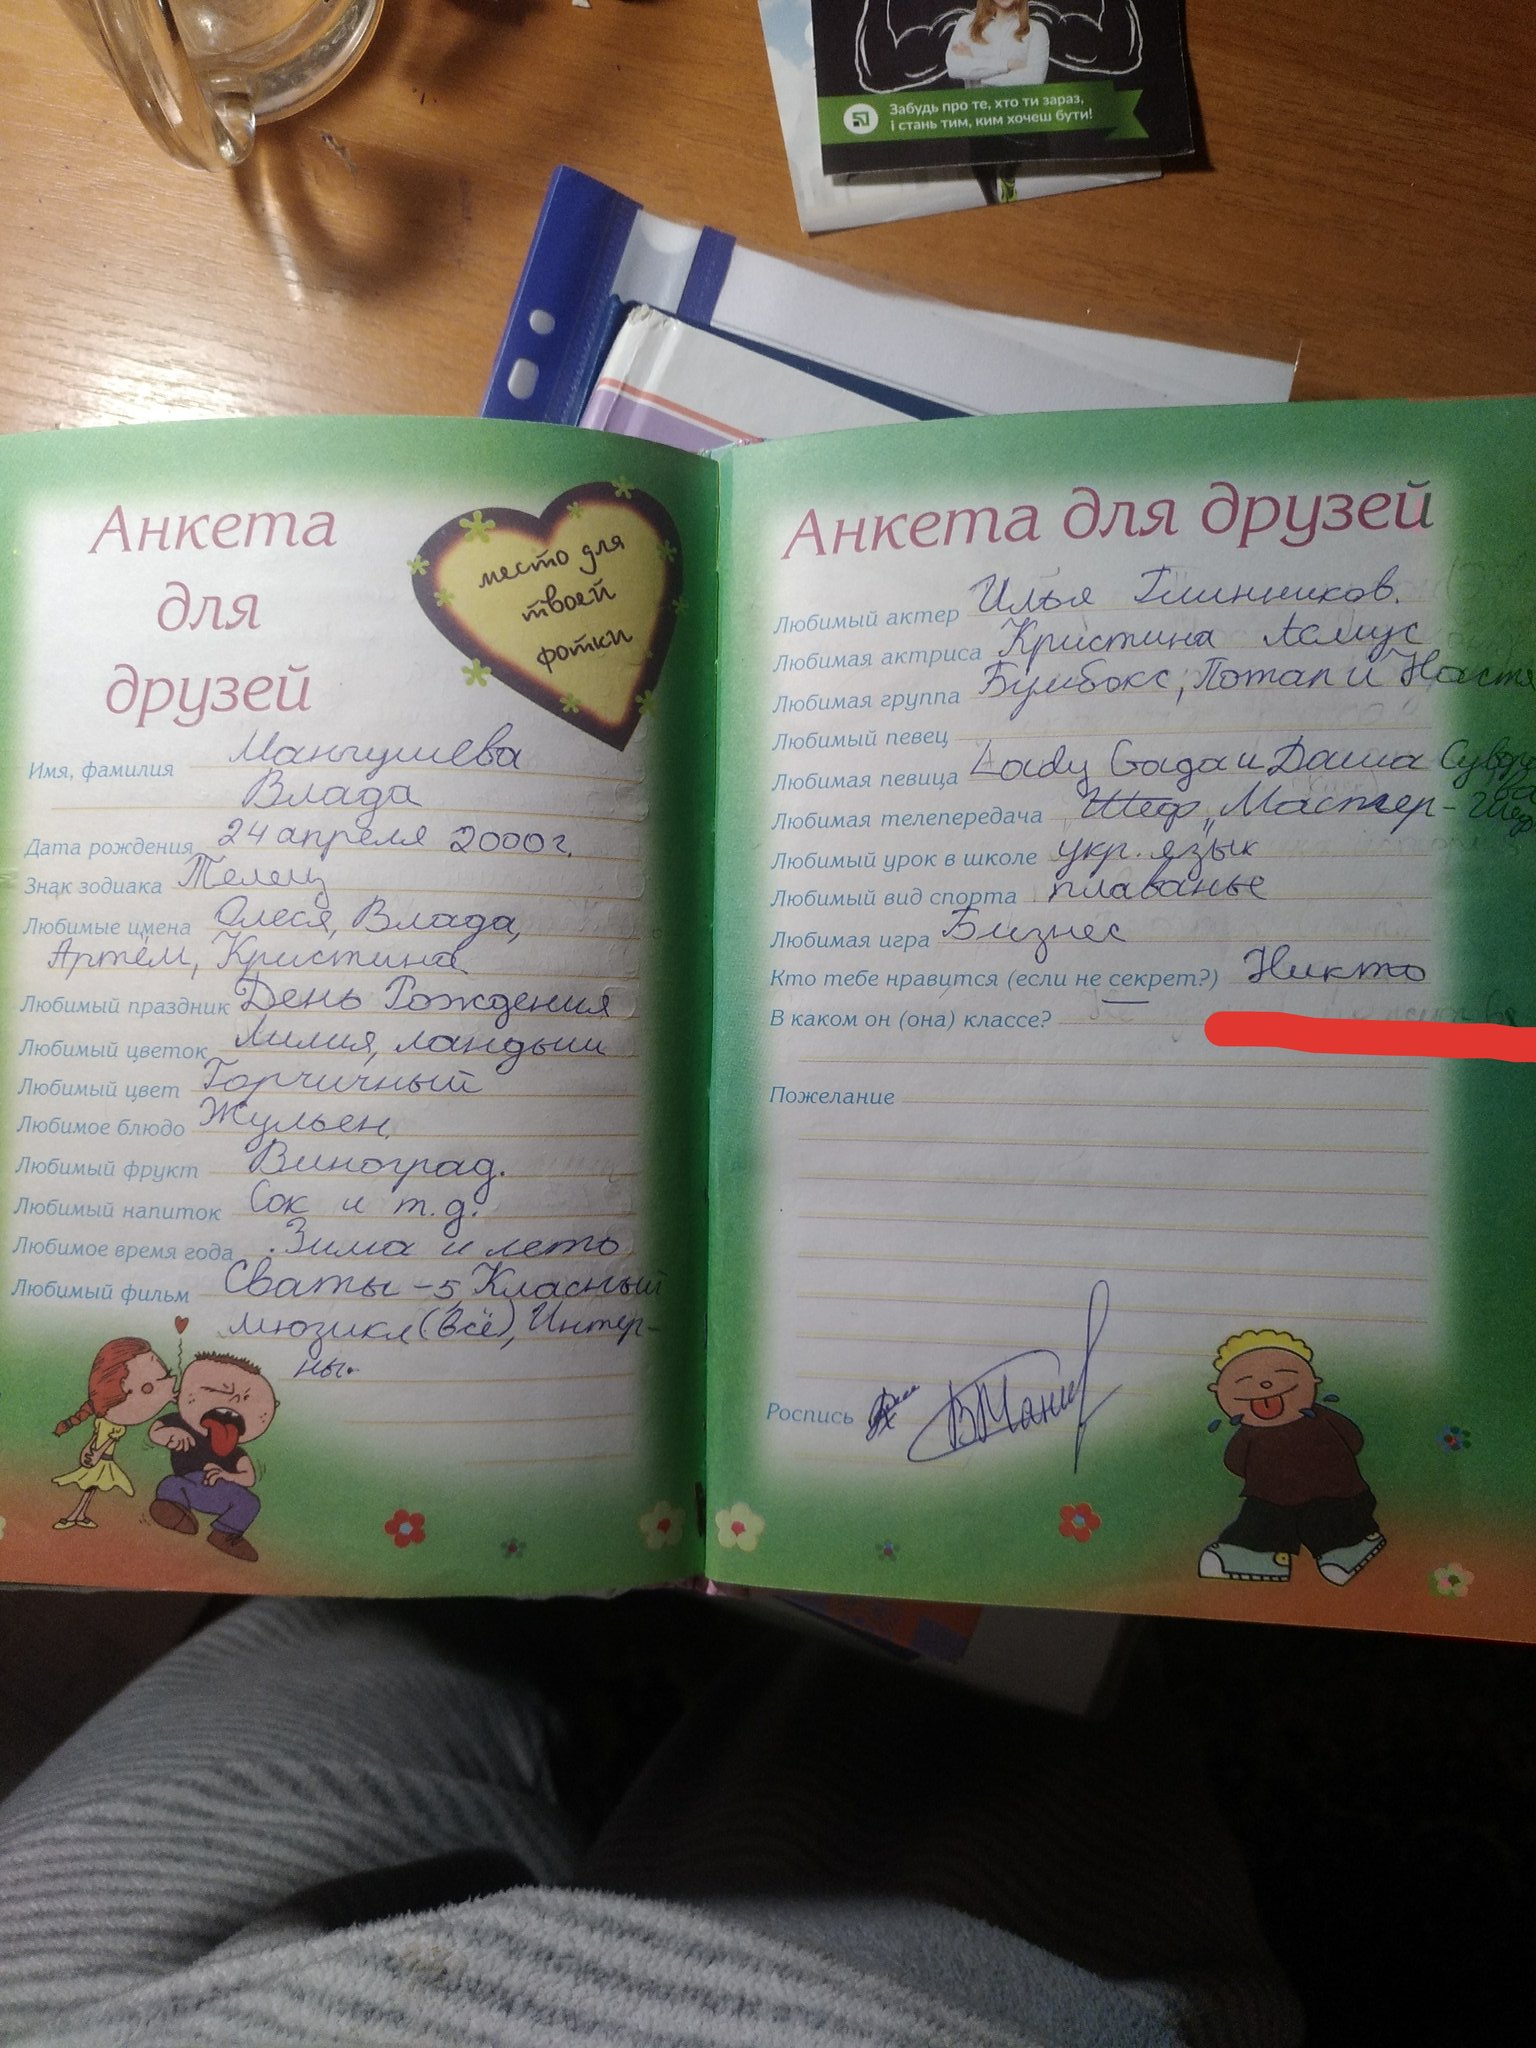 Забудь про те, хто ти зараз,
і стань тим, ким хочеш бути!
Анкета
для
друзей
место для
твоей
фотки
Имя, фамилия Мангушева
Влада
Дата рождения 24 апреля 2000г.
Знак зодиака Телец
Любимые имена Олеся, Влада,
Артём, Кристина
Любимый праздник День Рождения
Любимый цветок Лилия, ландыш
Любимый цвет Горчичный
Любимое блюдо Жульен.
Любимый фрукт Виноград.
Любимый напиток Сок и т.д.
Любимое время года Зима и лето
Любимый фильм Сваты-5, Класный
мюзикл (всё), Интер-
ны.
Анкета для друзей
Любимый актер Илья Глинников.
Любимая актриса Кристина Асмус
Любимая группа Бумбокс, Потап и Настя
Любимый певец
Любимая певица Lady Gaga и Даша
Любимая телепередача Шеф „Мастер-Шеф
Любимый урок в школе укр. язык
Любимый вид спорта плаванье
Любимая игра Бизнес
Кто тебе нравится (если не секрет?) Никто
В каком он (она) классе?
Пожелание
Роспись ВМанг